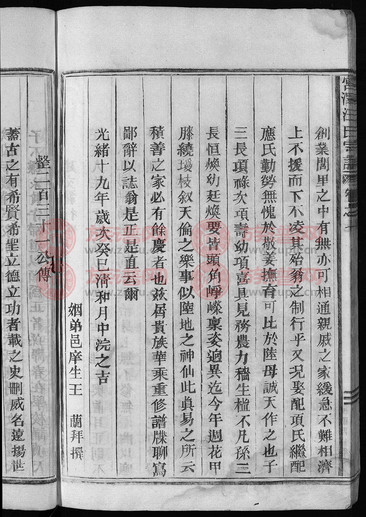 創業閭里之中有無亦可相通親戚之家緩急不難相濟
上不援而下不凌其殆翁之制行乎又況娶配項氏繼配
應氏勤勞無愧於敬姜撫育可比於陸母誠天作之也子
三長項祿次項壽幼項喜具見務農力穡生植不凡孫三
長恒煥幼廷煥要皆頭角崢嶸稟姿迥異迄今年週花甲
膝繞瓊枝叙天倫之樂事似陸地之神仙此眞易之所云
積善之家必有餘慶者也茲屆貴族華乘重修譜牒聊寫
鄙辭以誌翁是正是直云爾
光緒十九年歲次癸巳清和月中浣之吉
姻弟邑庠生王 蘭拜撰
整一百三十一公傳
蓄古之有希賢希聖立德立功者載之史刪威名遠揚世